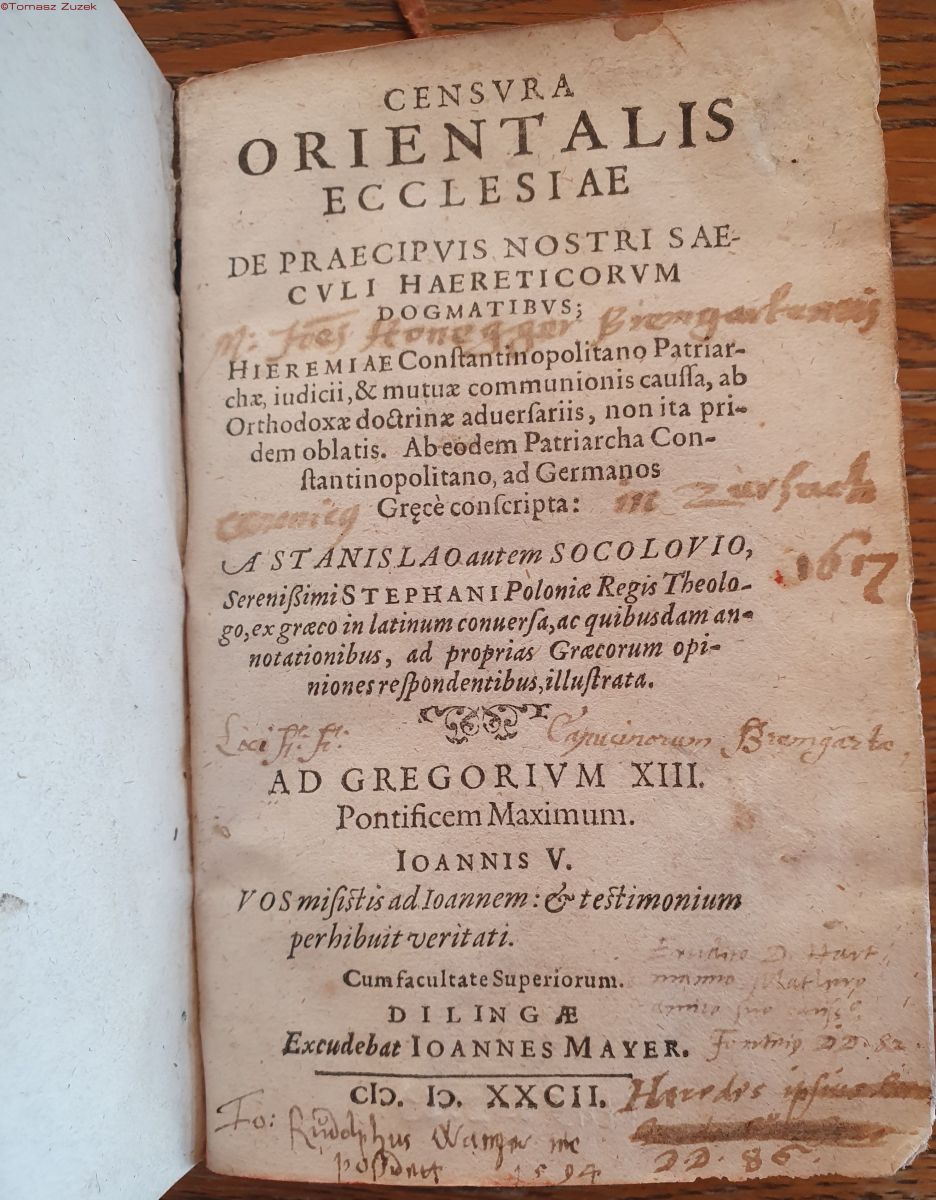 ©Tomasz Zuzek
CENSVRA
ORIENTALIS
ECCLESIAE
DE PRAECIPVIS NOSTRI SAE-
CVLI HAERETICORVM
DOGMATIBVS;
M: Joēs Honegger Bremgartensis
HIEREMIAE Conſtantinopolitano Patriar-
chæ, iudicii, & mutuæ communionis cauſſa, ab
Orthodoxæ doctrinæ aduerſariis, non ita pri-
dem oblatis. Ab eodem Patriarcha Con-
ſtantinopolitano, ad Germanos
Gręcè conſcripta:
in Zursach
A STANISLAO autem SOCOLOVIO,
1617
Sereniſsimi STEPHANI Poloniæ Regis Theolo-
go, ex græco in latinum conuerſa, ac quibusdam an-
notationibus, ad proprias Græcorum opi-
niones reſpondentibus, illuſtrata.
Loci
Capucinorum Bremgartæ
AD GREGORIVM XIII.
Pontificem Maximum.
IOANNIS V.
VOS miſiſtis ad Ioannem: & teſtimonium
perhibuit veritati.
Cum facultate Superiorum.
DILINGÆ
Excudebat IOANNES MAYER.
DD. 82.
CIↃ. IↃ. XXCII.
Haeredes ipsius
DD. 86.
Jo: Rudolphus me
1594